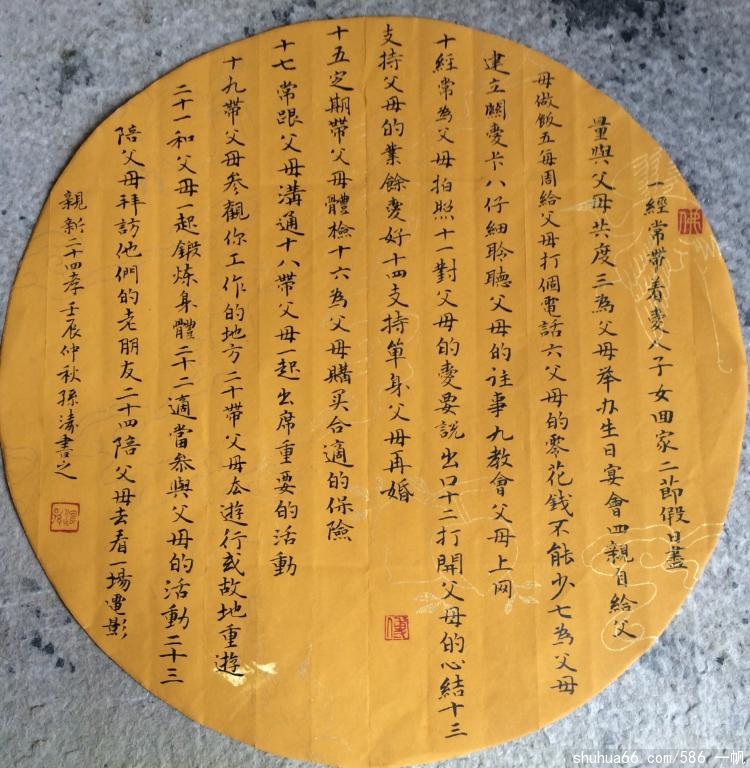 一經常帶着愛人子女回家二節假日盡
量與父母共度三為父母举办生日宴會四親自給父
母做飯五每周給父母打個電話六父母的零花錢不能少七為父母
建立關愛卡八仔細聆聽父母的往事九教會父母上网
十經常為父母拍照十一對父母的愛要説出口十二打開父母的心結十三
支持父母的業餘愛好十四支持單身父母再婚
十五定期帶父母體檢十六為父母購买合適的保險
十七常跟父母溝通十八帶父母一起出席重要的活動
十九帶父母参觀你工作的地方二十帶父母去遊行或故地重遊
二十一和父母一起鍛炼身體二十二適當参與父母的活動二十三
陪父母拜訪他們的老朋友二十四陪父母去看一場電影
親新二十四孝壬辰仲秋孫濤書之
佛
shuhua66.com/586 一帆